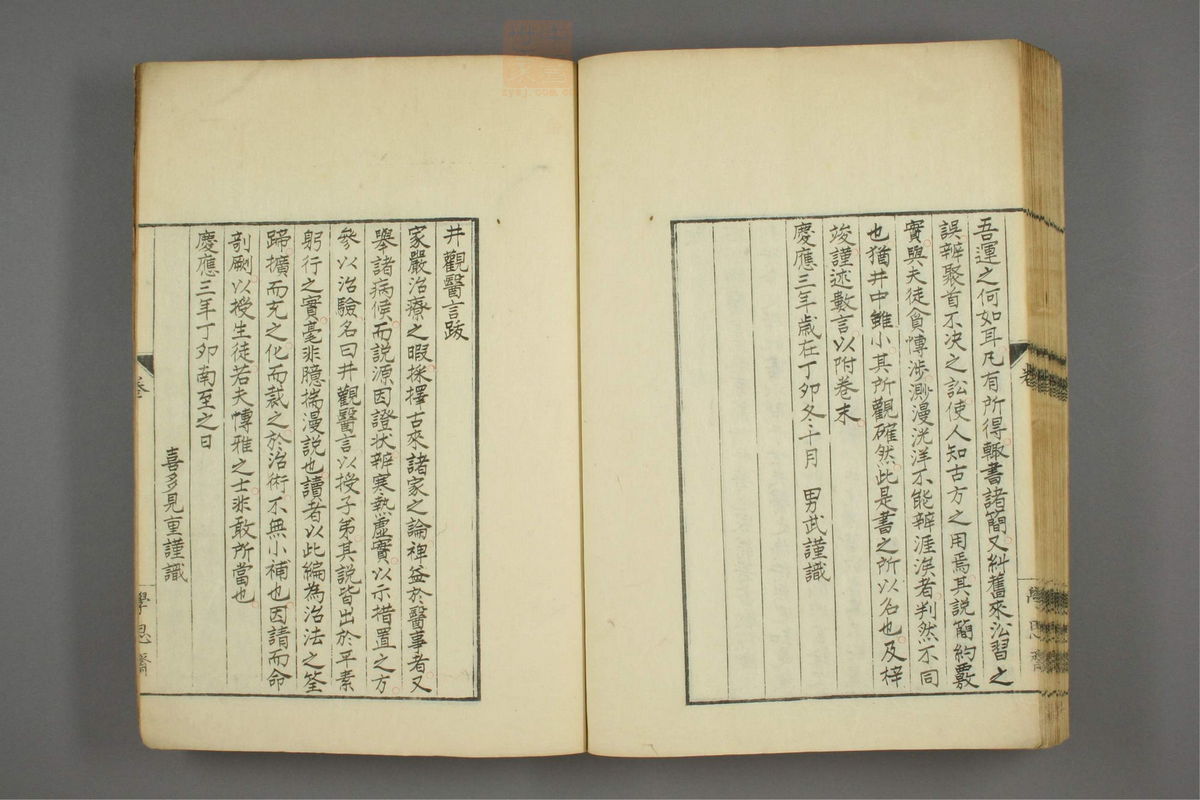 吾運之何如耳凡有所得輙書諸簡又糾舊來沿習之
誤辨聚首不决之訟使人知古方之用焉其說簡約覈
實與夫徒貪博涉渺漫洸洋不能辨涯涘者判然不同
也猶井中雖小其所觀確然此是書之所以名也及梓
竣謹述數言以附卷末
慶應三年歲在丁卯冬十月　男武謹識
井觀醫言跋
家嚴治療之暇採擇古來諸家之論裨益於醫事者又
舉諸病候而說源因證狀辨寒熱虛實以示措置之方
參以治驗名曰井觀醫言以授子弟其說皆出於平素
躬行之實毫非臆揣漫說也讀者以此編為治法之筌
蹄擴而充之化而裁之於治術不無小補也因請而命
剞劂以授生徒若夫博雅之士非敢所當也
慶應三年丁卯南至之日
喜多見重謹識
卷
學思齋